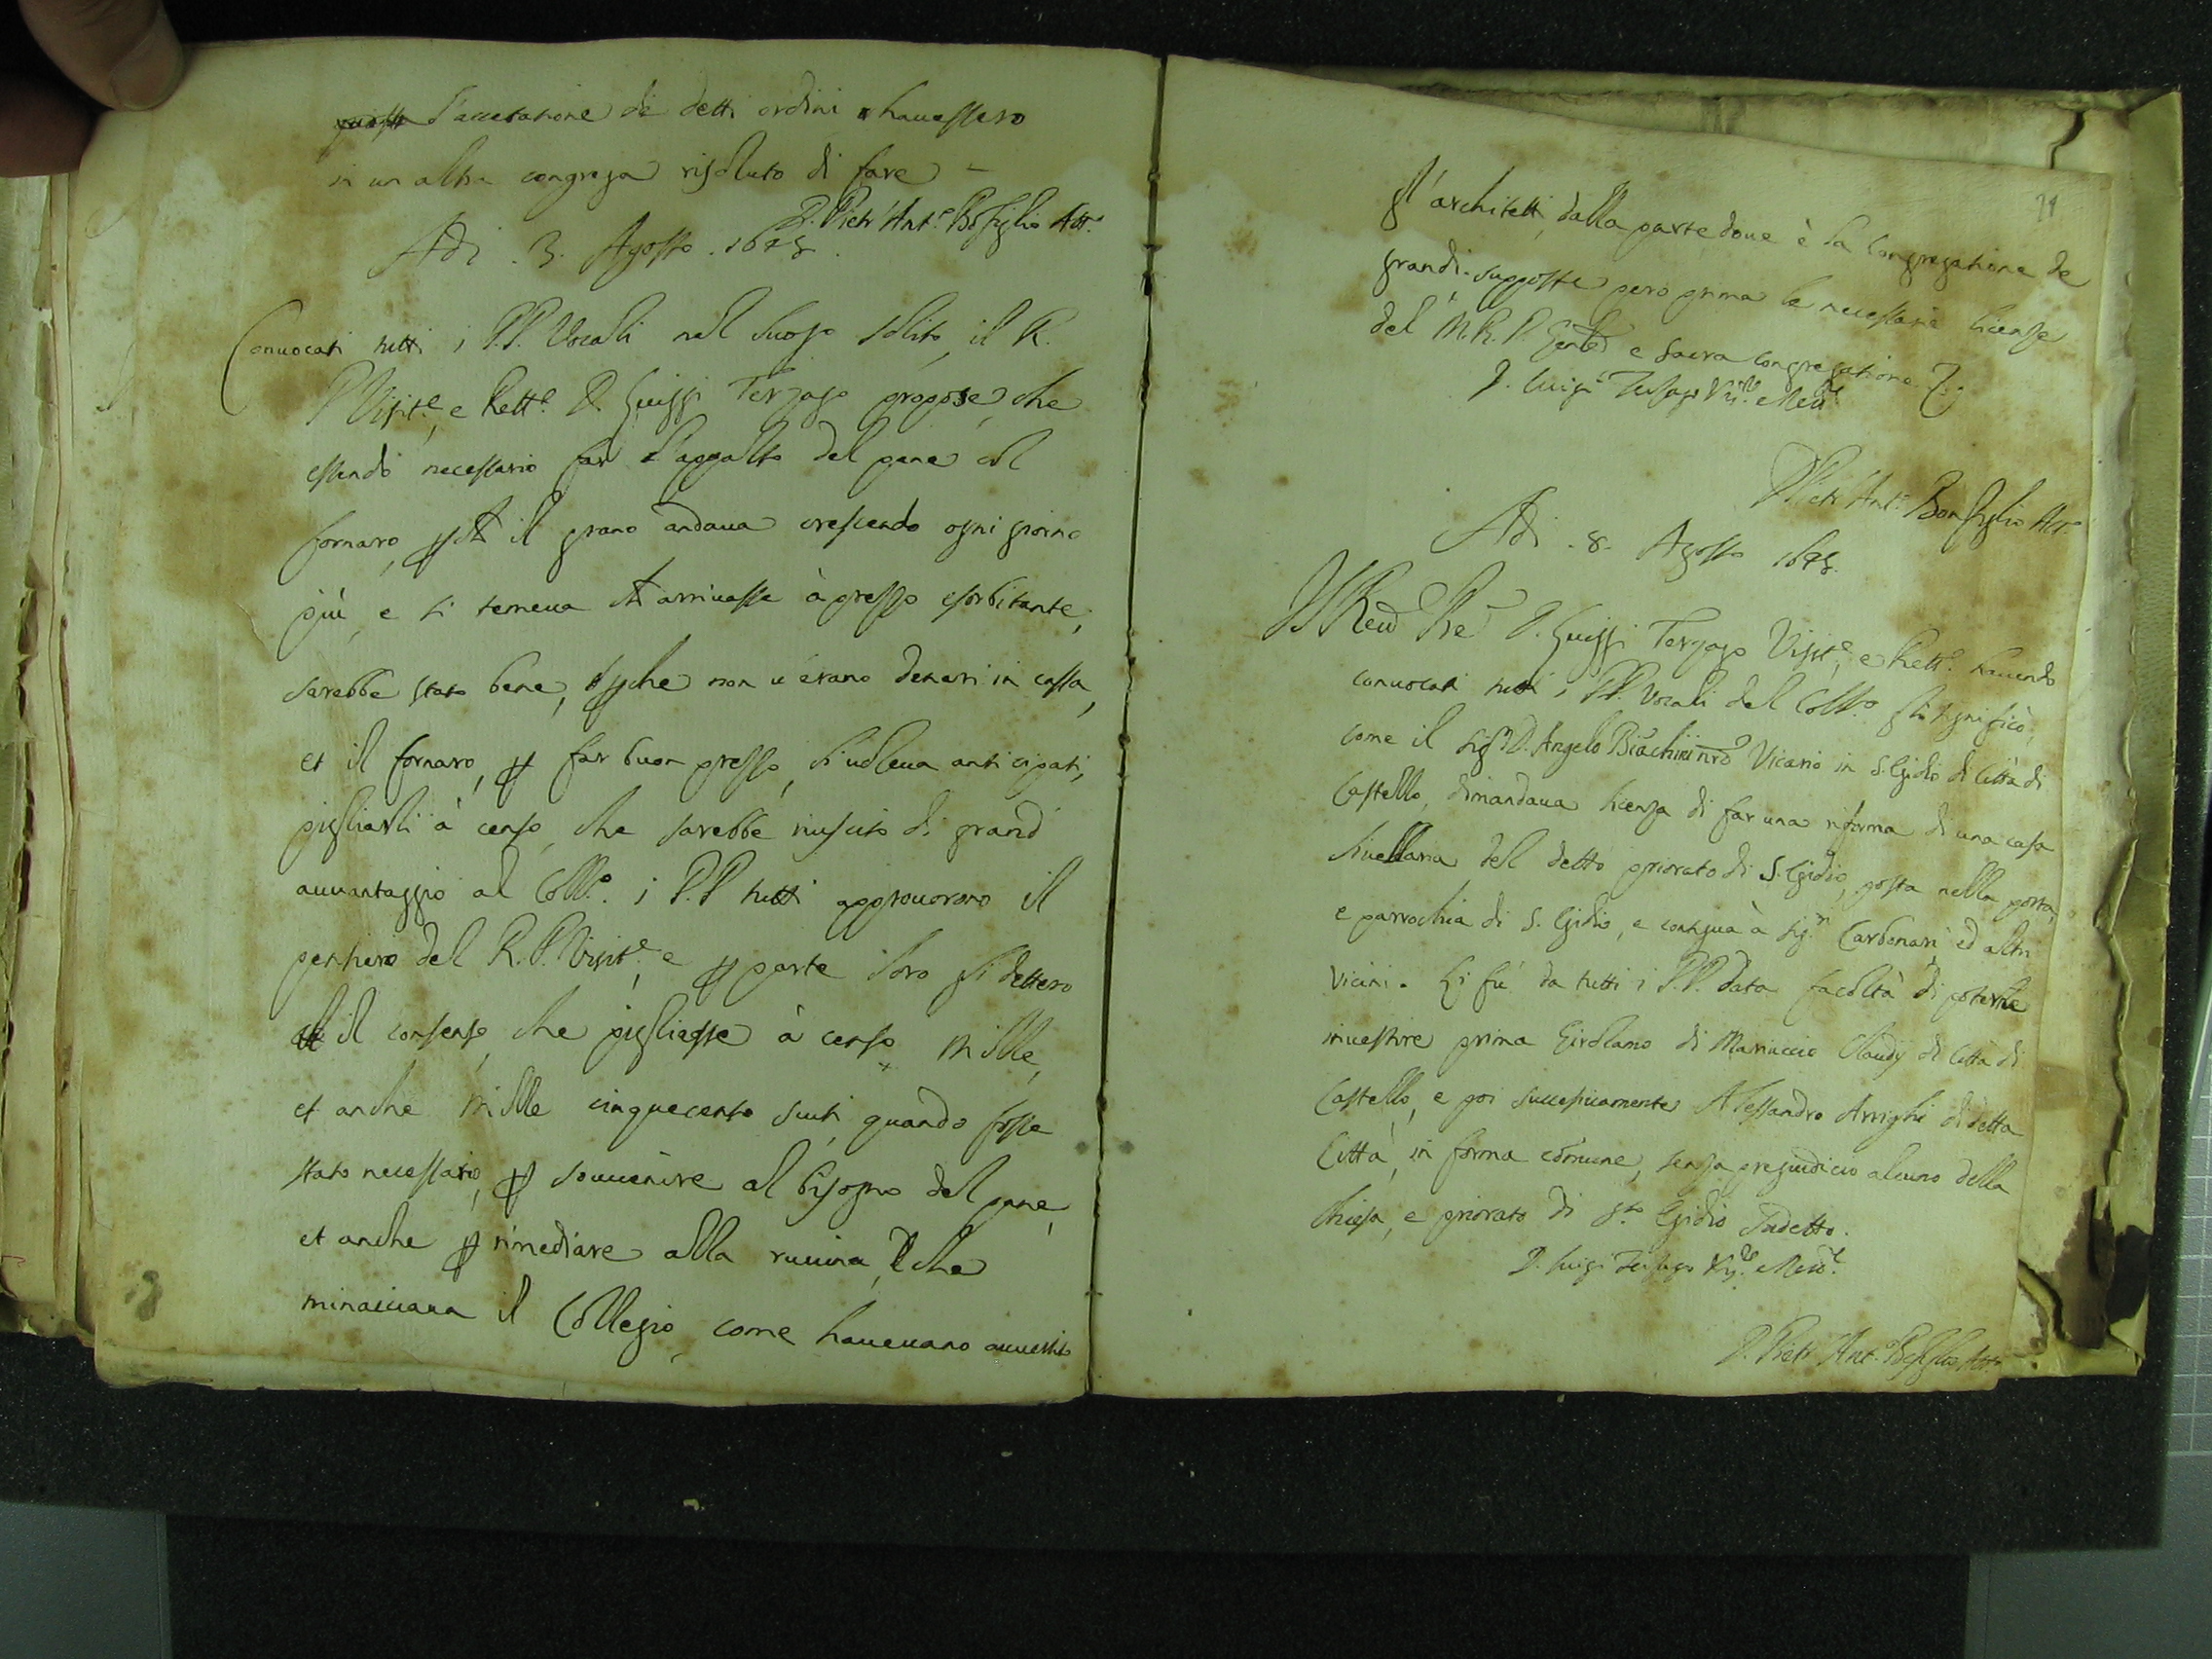 l'accetatione de detti ordini havessero
in un altra congrega risoluto di fare
D. Pietr' Ant.º Bõfiglio Att.º
Adi . 3. Agosto . 1648 .
Convocati tutti i P.P. Vocali nel luogo solito, il R.
P. Visit.e, e Rett.e D. Luiggi Terzago propose, che
essendo necessario far l'appalto del pane col
fornaro, il grano andava crescendo ogni giorno
più, e si temeva che arrivasse à prezzo esorbitante,
sarebbe stato bene, che non v'erano denari in cassa,
et il fornaro, ꝑ far buon prezzo, li voleva anticipati,
pigliarli à censo, che sarebbe riuscito di grand
avvantaggio al Coll.º. i P.P. tutti approvorono il
pensiero del R. P. Visit.e, e ꝑ parte loro gli dettero
il consenso, che pigliasse à censo mille,
et anche mille cinquecento scuti, quando fosse
stato necessario, ꝑ sovvenire al bisogno del pane,
et anche ꝑ rimediare alla ruvina, che
minacciava il Collegio, come havevano avvertito
gl'architetti, dalla parte dove è la Congregatione de
grandi. supposte però prima le necessarie licenze
del M. R. P. Genle e sacra congregatione
D. Luigi Terzago Vis.re e Rett.re
D. Pietr' Ant.º Bonfiglio Att.º
Adi . 8. Agosto 1648.
Il Revd P. Luiggi Terzago Visit.e, e Rett.e havendo
convocati tutti i P.P. Vocali del Coll.º gli significò,
come il Sigr D. Angelo Biãchini nrõ Vicario in S. Egidio di Città di
Castello, dimandava licenza di far una riforma di una casa
livellaria del detto priorato di S. Egidio, posta nella porta,
e parrochia di S. Egidio, e contigua à Sig.ri Carbonari, ed altri
vicini. Li fù da tutti i P.P. data facoltà di poterne
investire prima Girolamo di Mariuccio Claudij di Città di
Castello, e poi successivamente Alessandro Arrighi di detta
Città, in forma comune, senza pregiudicio alcuno della
Chiesa, e priorato di S.to Egidio sudetto.
D. Luigi Terzago Vis.re e Rett.re
D. Pietr' Ant.º Bõfiglio Att.º